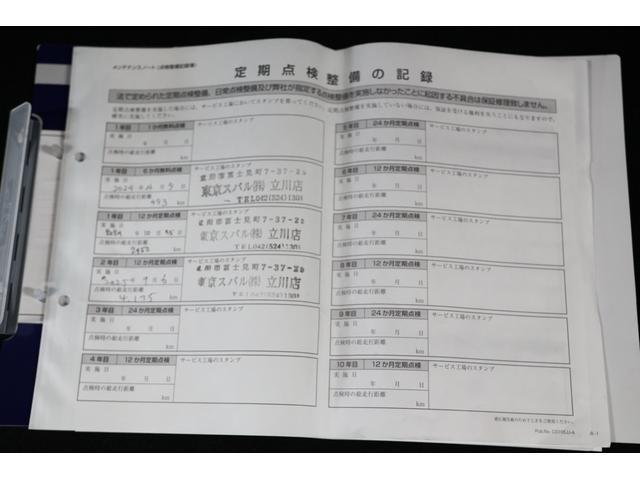 メンテナンスノート(点検整備記録簿)
定期点検整備の記録
法で定められた定期点検整備、日常点検整備及び弊社が指定する点検整備を実施しなかったことに起因する不具合は保証修理致しません。
1年目 1か月無料点検 サービス工場のスタンプ
実施日
年 月 日
点検時の総走行距離
km
1年目 6か月無料点検 サービス工場のスタンプ
実施日
点検時の総走行距離
km
立川市富士見町7-37-20
東京スバル㈱ 立川店
TEL042(524)1301
1年目 12か月定期点検 サービス工場のスタンプ
実施日
点検時の総走行距離
km
立川市富士見町7-37-20
東京スバル㈱ 立川店
TEL042(524)1301
2年目 12か月定期点検 サービス工場のスタンプ
実施日
点検時の総走行距離
4,135
km
立川市富士見町7-37-20
東京スバル㈱ 立川店
3年目 24か月定期点検 サービス工場のスタンプ
実施日
年 月 日
点検時の総走行距離
km
4年目 12か月定期点検 サービス工場のスタンプ
実施日
年 月 日
点検時の総走行距離
km
5年目 24か月定期点検 サービス工場のスタンプ
実施日
年 月 日
点検時の総走行距離
km
6年目 12か月定期点検 サービス工場のスタンプ
実施日
年 月 日
点検時の総走行距離
km
7年目 24か月定期点検 サービス工場のスタンプ
実施日
年 月 日
点検時の総走行距離
km
8年目 12か月定期点検 サービス工場のスタンプ
実施日
年 月 日
点検時の総走行距離
km
9年目 24か月定期点検 サービス工場のスタンプ
実施日
年 月 日
点検時の総走行距離
km
10年目 12か月定期点検 サービス工場のスタンプ
実施日
年 月 日
点検時の総走行距離
km